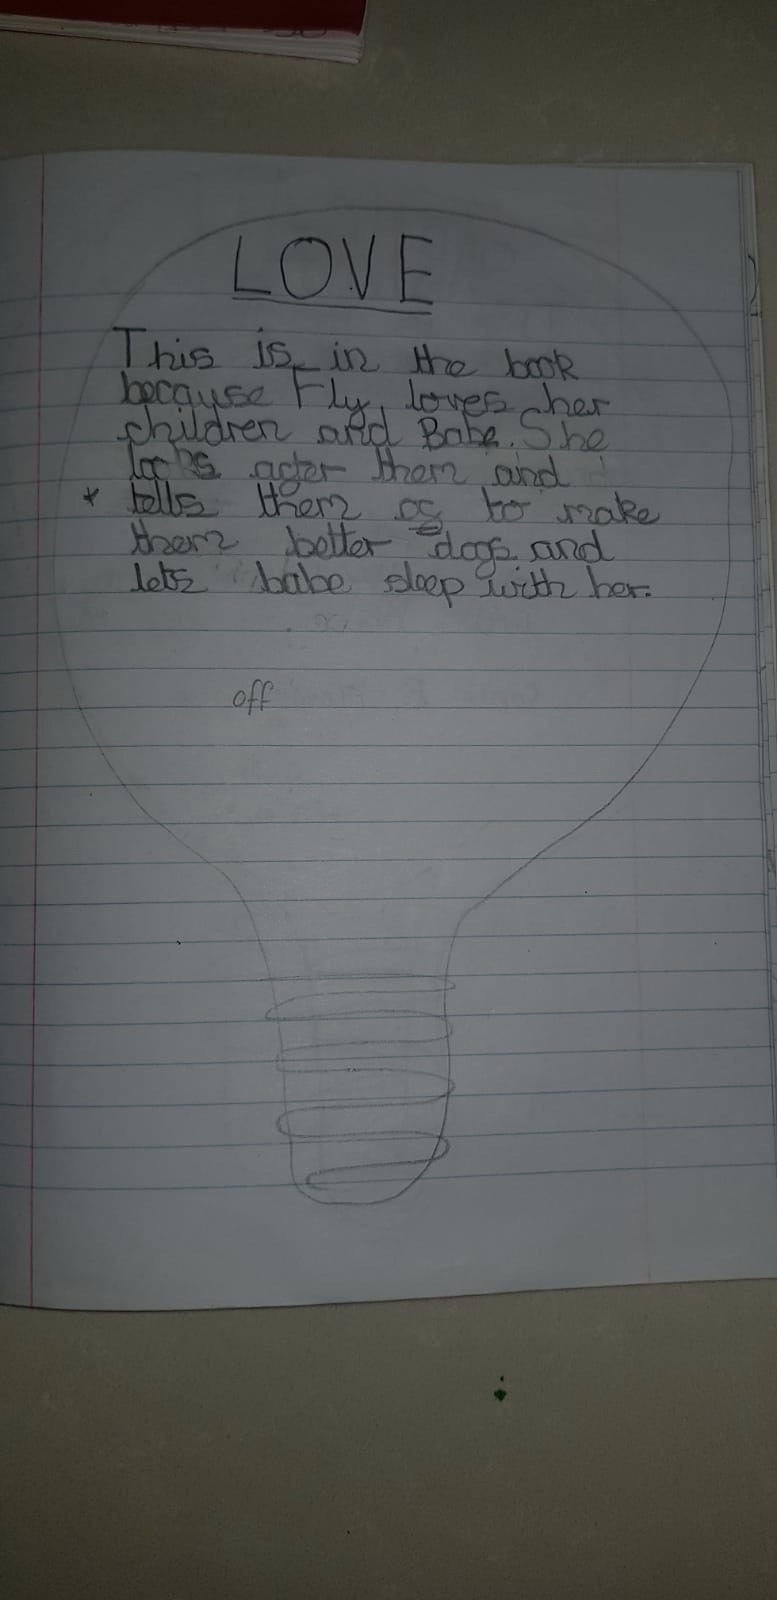 LOVE
This is in the book
because Fly loves her
children and Babe. She
looks acter them and
* tells them og to make
them better dogs and
lets babe sleep with her.
off